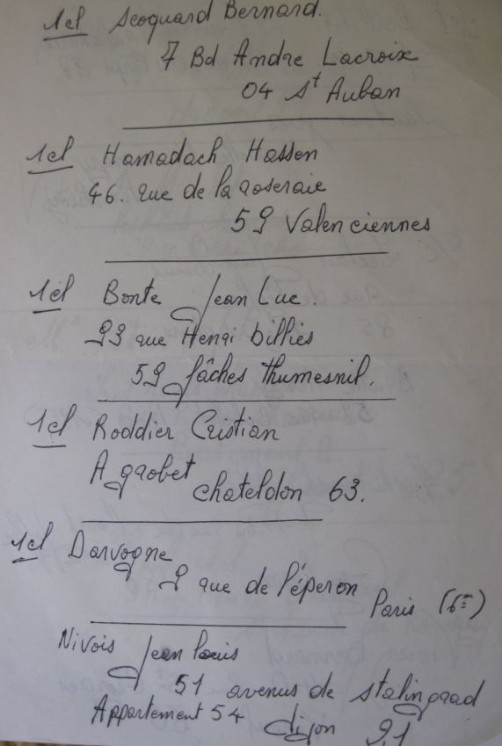 1cl Scoquard Bernard.
7 Bd Andre Lacroix
04 St Auban
1cl Hamadach Hassen
46. rue de la roseraie
59 Valenciennes
1cl Bonte Jean Luc.
93 rue Henri billies
59 fâches thumesnil.
1cl Roddier Cristian
A grobet
chateldon 63.
1cl Darvogne
9 rue de l'éperon
Paris (6e)
Nivois Jean Louis
51 avenus de stalingrad
Appartement 54 dijon 21